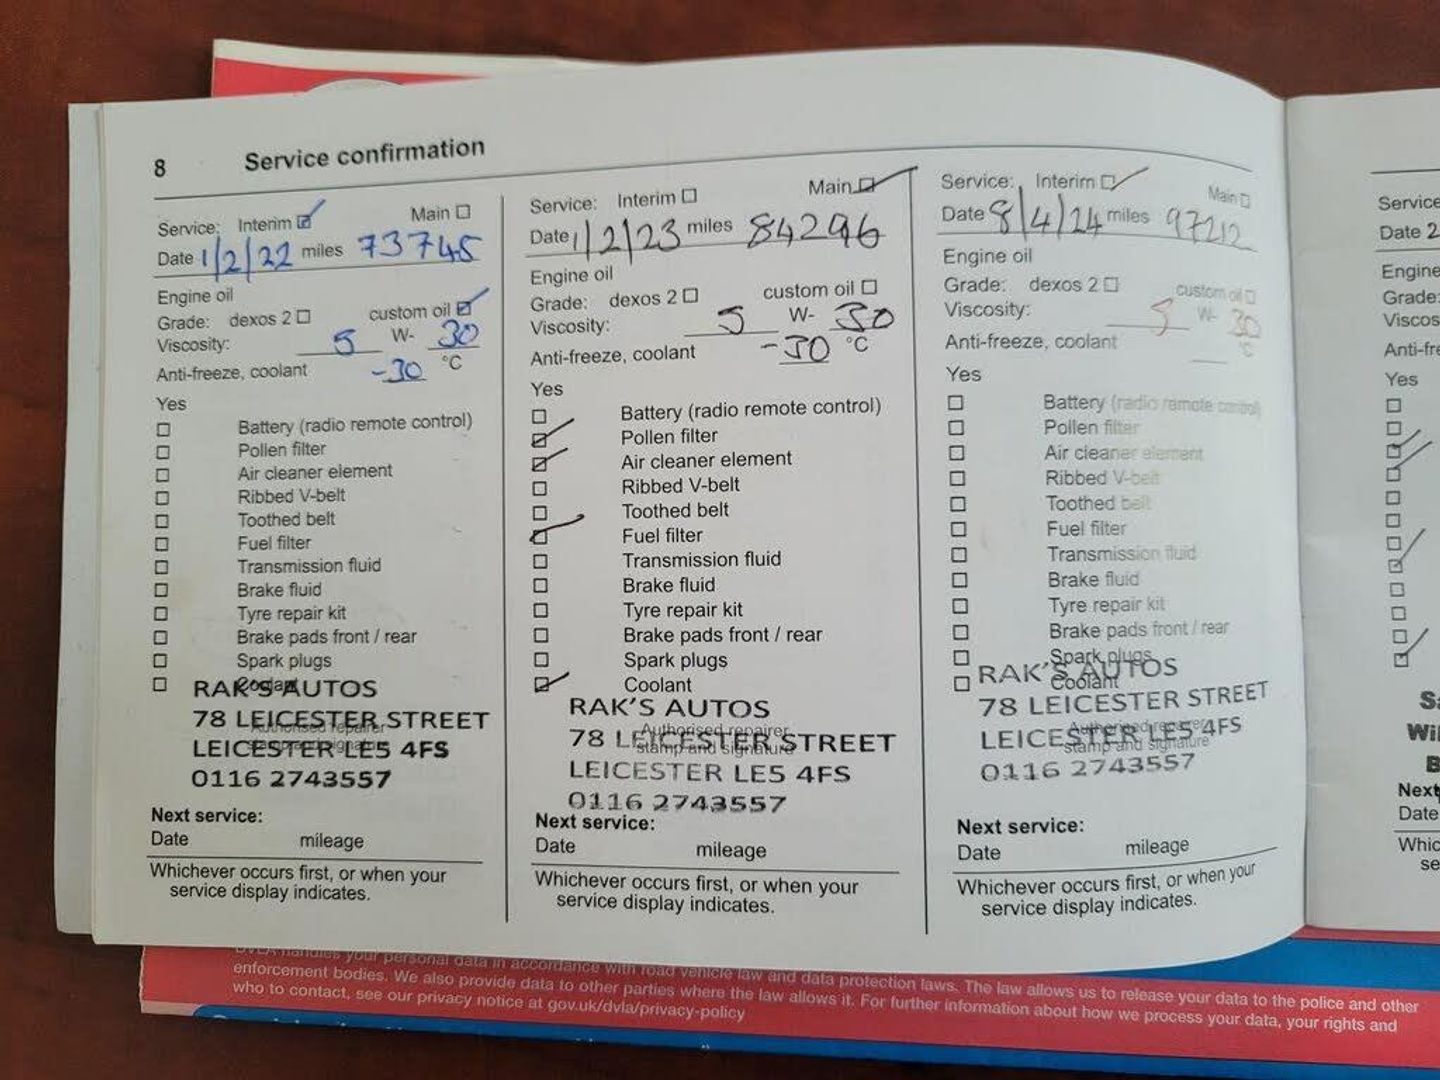 8 Service confirmation
Service: Interim Main
Date 1/2/22 miles 73745
Engine oil
Grade: dexos 2 custom oil
Viscosity: 5 W- 30
Anti-freeze, coolant -30 °C
Yes
Battery (radio remote control)
Pollen filter
Air cleaner element
Ribbed V-belt
Toothed belt
Fuel filter
Transmission fluid
Brake fluid
Tyre repair kit
Brake pads front / rear
Spark plugs
Coolant
RAK'S AUTOS
78 LEICESTER STREET
Authorised repairer
stamp and signature
LEICESTER LE5 4FS
0116 2743557
Next service:
Date mileage
Whichever occurs first, or when your
service display indicates.
Service: Interim Main
Date 1/2/23 miles 84296
Engine oil
Grade: dexos 2 custom oil
Viscosity: 5 W- 30
Anti-freeze, coolant -30 °C
Yes
Battery (radio remote control)
Pollen filter
Air cleaner element
Ribbed V-belt
Toothed belt
Fuel filter
Transmission fluid
Brake fluid
Tyre repair kit
Brake pads front / rear
Spark plugs
Coolant
RAK'S AUTOS
Authorised repairer
78 LEICESTER STREET
stamp and signature
LEICESTER LE5 4FS
0116 2743557
Next service:
Date mileage
Whichever occurs first, or when your
service display indicates.
Service: Interim Main
Date 8/4/24 miles 97212
Engine oil
Grade: dexos 2 custom oil
Viscosity: 5 W- 30
Anti-freeze, coolant °C
Yes
Battery (radio remote control)
Pollen filter
Air cleaner element
Ribbed V-belt
Toothed belt
Fuel filter
Transmission fluid
Brake fluid
Tyre repair kit
Brake pads front / rear
Spark plugs
RAK'S AUTOS
Coolant
78 LEICESTER STREET
Authorised repairer
LEICESTER LE5 4FS
stamp and signature
0116 2743557
Next service:
Date mileage
Whichever occurs first, or when your
service display indicates.
Service
Date 2
Engine
Grade:
Viscos
Anti-fre
Yes
Sa
Wil
B
Next
Date
Whic
se
DVLA handles your personal data in accordance with road vehicle law and data protection laws. The law allows us to release your data to the police and other
enforcement bodies. We also provide data to other parties where the law allows it. For further information about how we process your data, your rights and
who to contact, see our privacy notice at gov.uk/dvla/privacy-policy